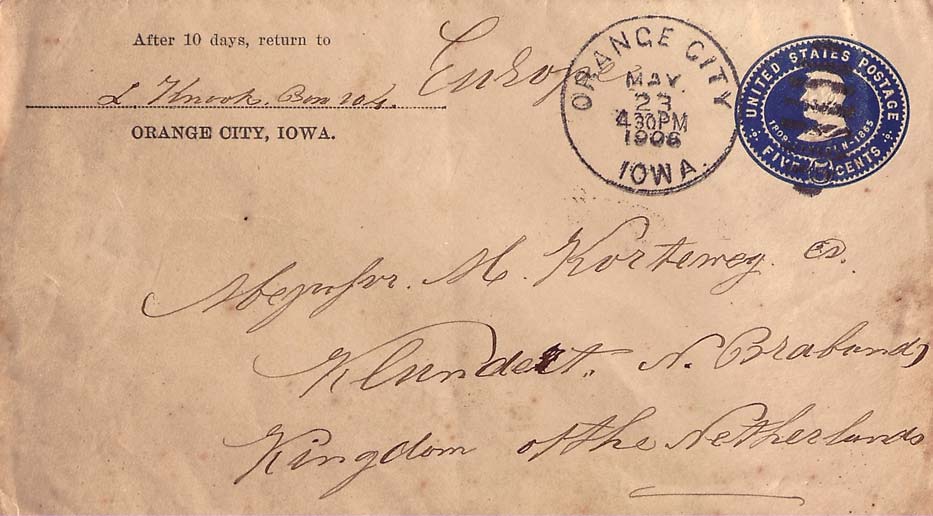 After 10 days, return to
L. Knook. Box 104.
ORANGE CITY, IOWA.
Europe
ORANGE CITY
MAY
23
4 30PM
1906
IOWA.
UNITED STATES POSTAGE
1865
FIVE 5 CENTS
M. Korteweg.
Klundert. N. Braband,
Kingdom of the Netherlands